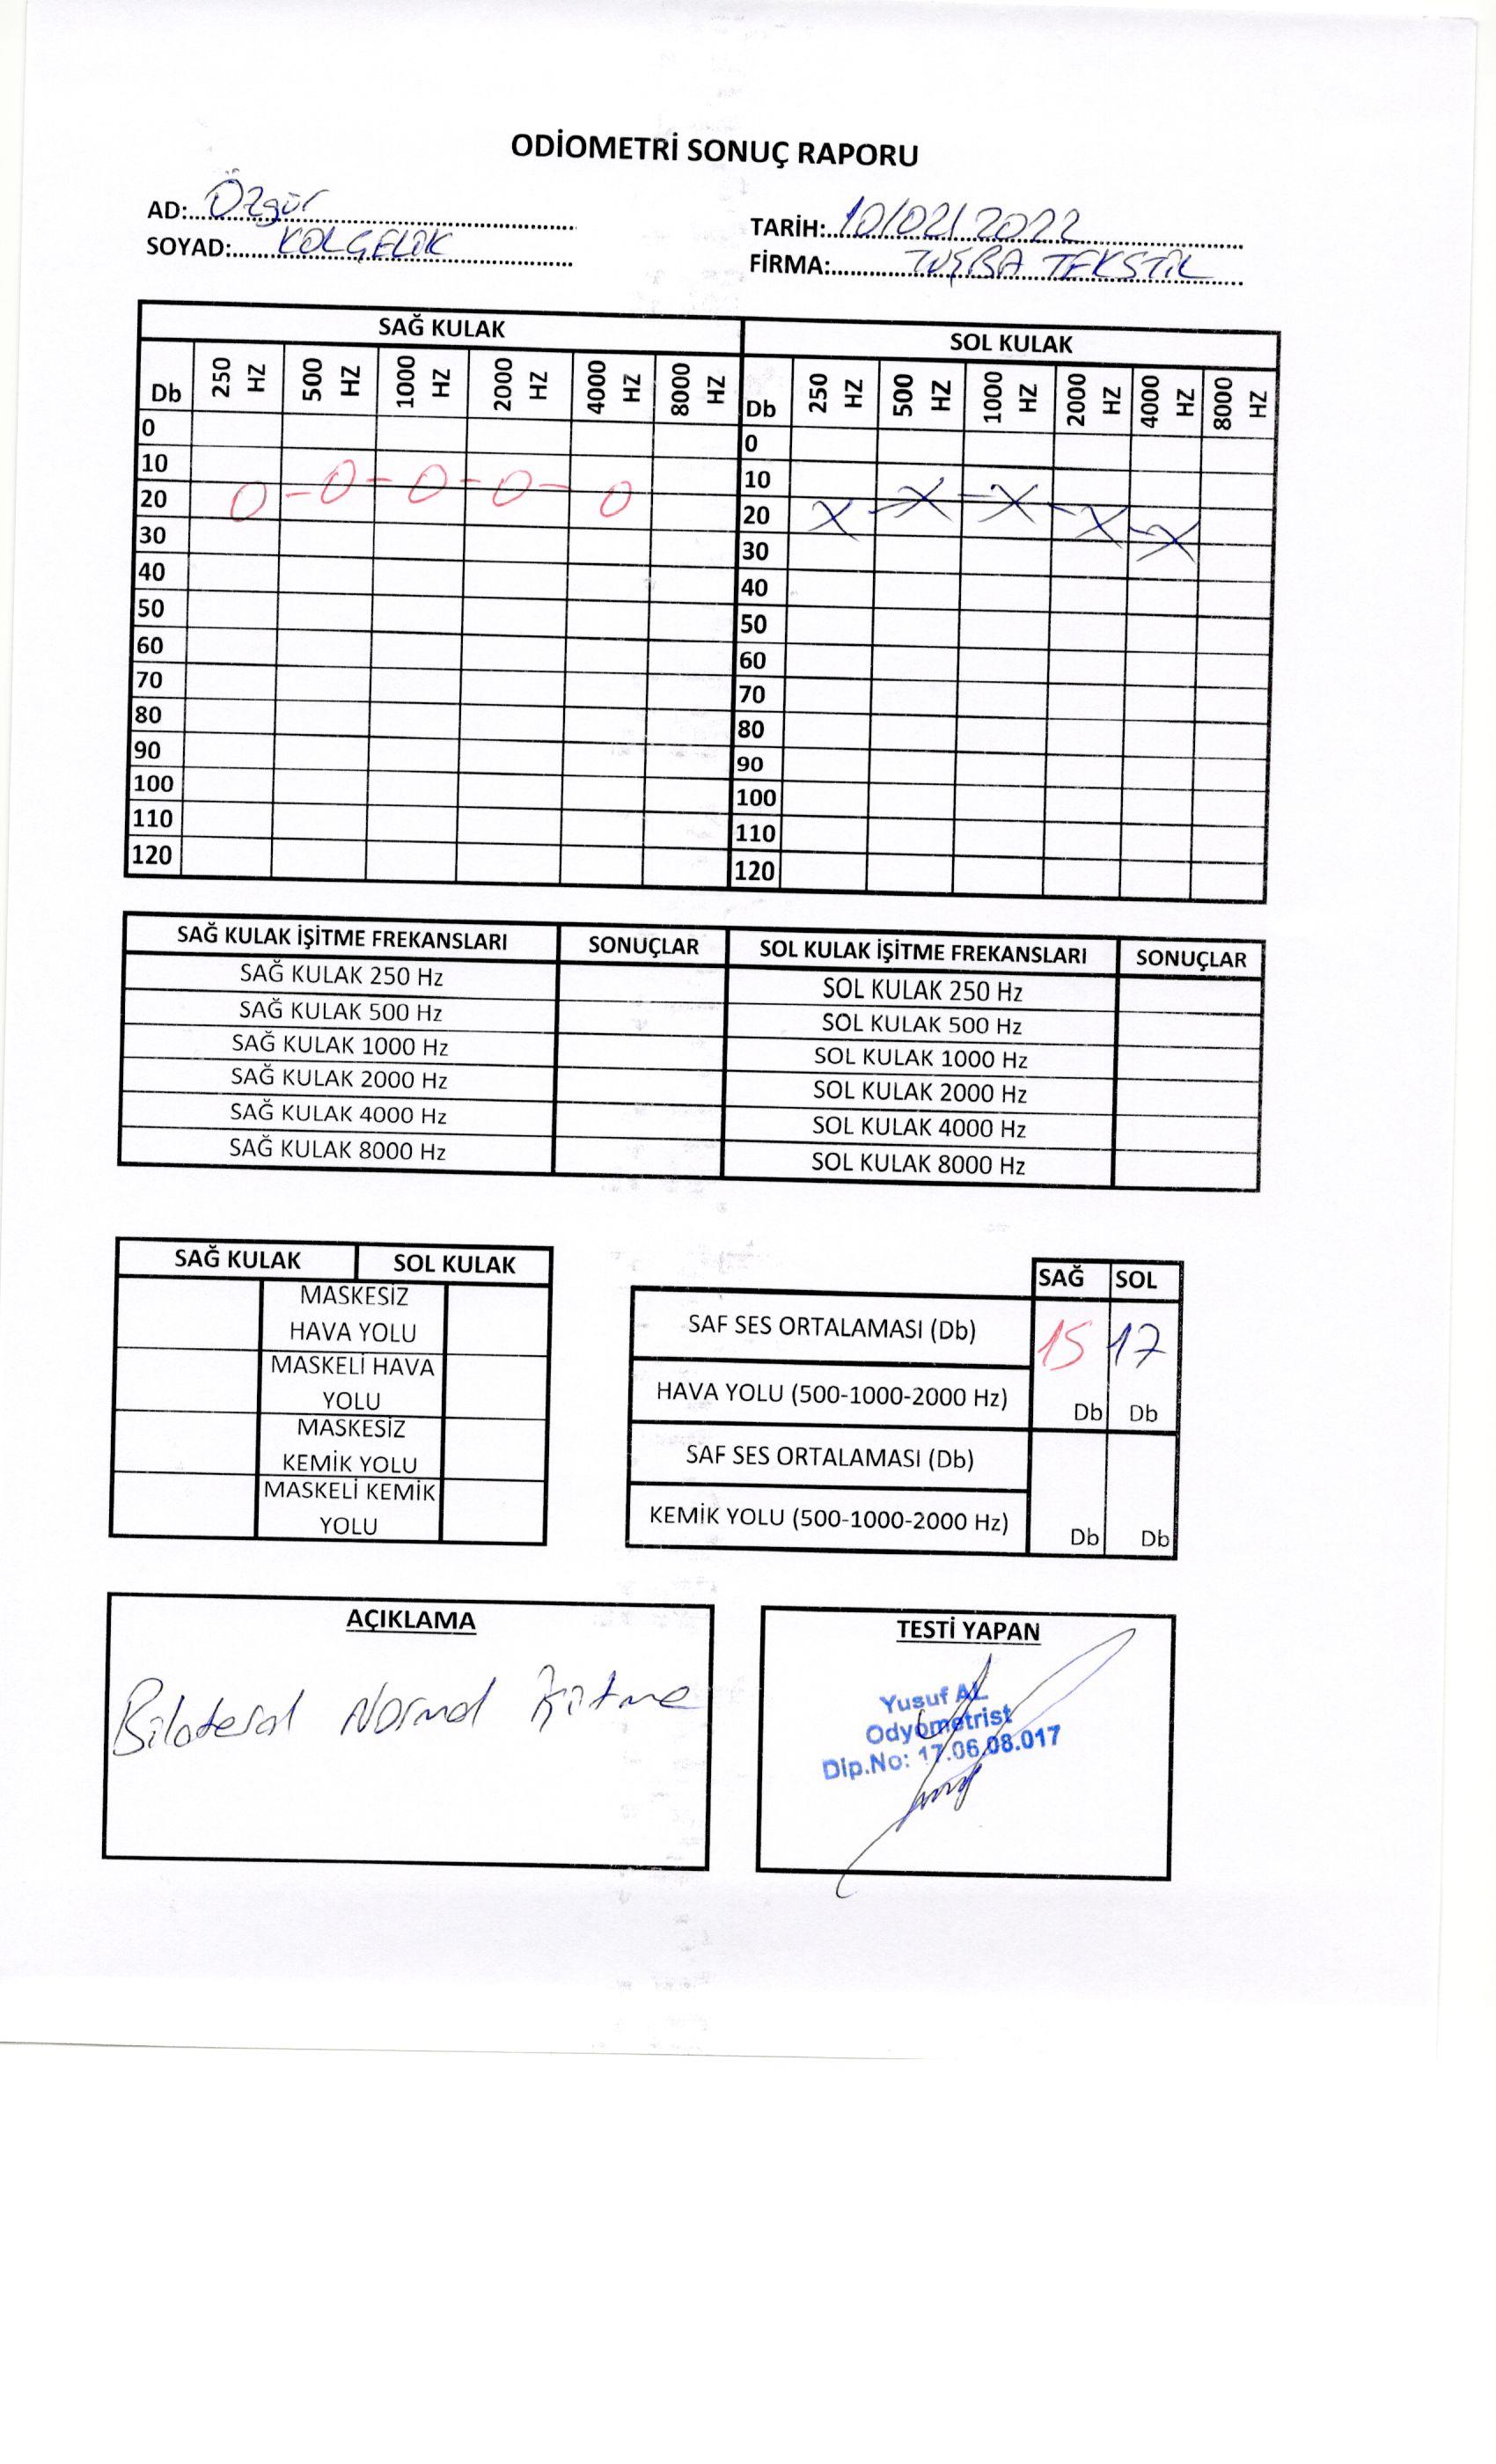 ODİOMETRİ SONUÇ RAPORU
AD: Özgür
SOYAD: KOLÇELİK
TARİH: 10/02/2022
FİRMA: TUĞBA TEKSTİL
SAĞ KULAK SOL KULAK
Db 250 HZ 500 HZ 1000 HZ 2000 HZ 4000 HZ 8000 HZ Db 250 HZ 500 HZ 1000 HZ 2000 HZ 4000 HZ 8000 HZ
0 0
10 10
20 20
30 30
40 40
50 50
60 60
70 70
80 80
90 90
100 100
110 110
120 120
SAĞ KULAK İŞİTME FREKANSLARI SONUÇLAR SOL KULAK İŞİTME FREKANSLARI SONUÇLAR
SAĞ KULAK 250 Hz SOL KULAK 250 Hz
SAĞ KULAK 500 Hz SOL KULAK 500 Hz
SAĞ KULAK 1000 Hz SOL KULAK 1000 Hz
SAĞ KULAK 2000 Hz SOL KULAK 2000 Hz
SAĞ KULAK 4000 Hz SOL KULAK 4000 Hz
SAĞ KULAK 8000 Hz SOL KULAK 8000 Hz
SAĞ KULAK SOL KULAK
MASKESİZ
HAVA YOLU
MASKELİ HAVA
YOLU
MASKESİZ
KEMİK YOLU
MASKELİ KEMİK
YOLU
SAĞ SOL
SAF SES ORTALAMASI (Db) 15 17
HAVA YOLU (500-1000-2000 Hz) Db Db
SAF SES ORTALAMASI (Db)
KEMİK YOLU (500-1000-2000 Hz) Db Db
AÇIKLAMA
Bilateral Normal İşitme
TESTİ YAPAN
Yusuf AL
Odyometrist
Dip.No: 17.06.08.017